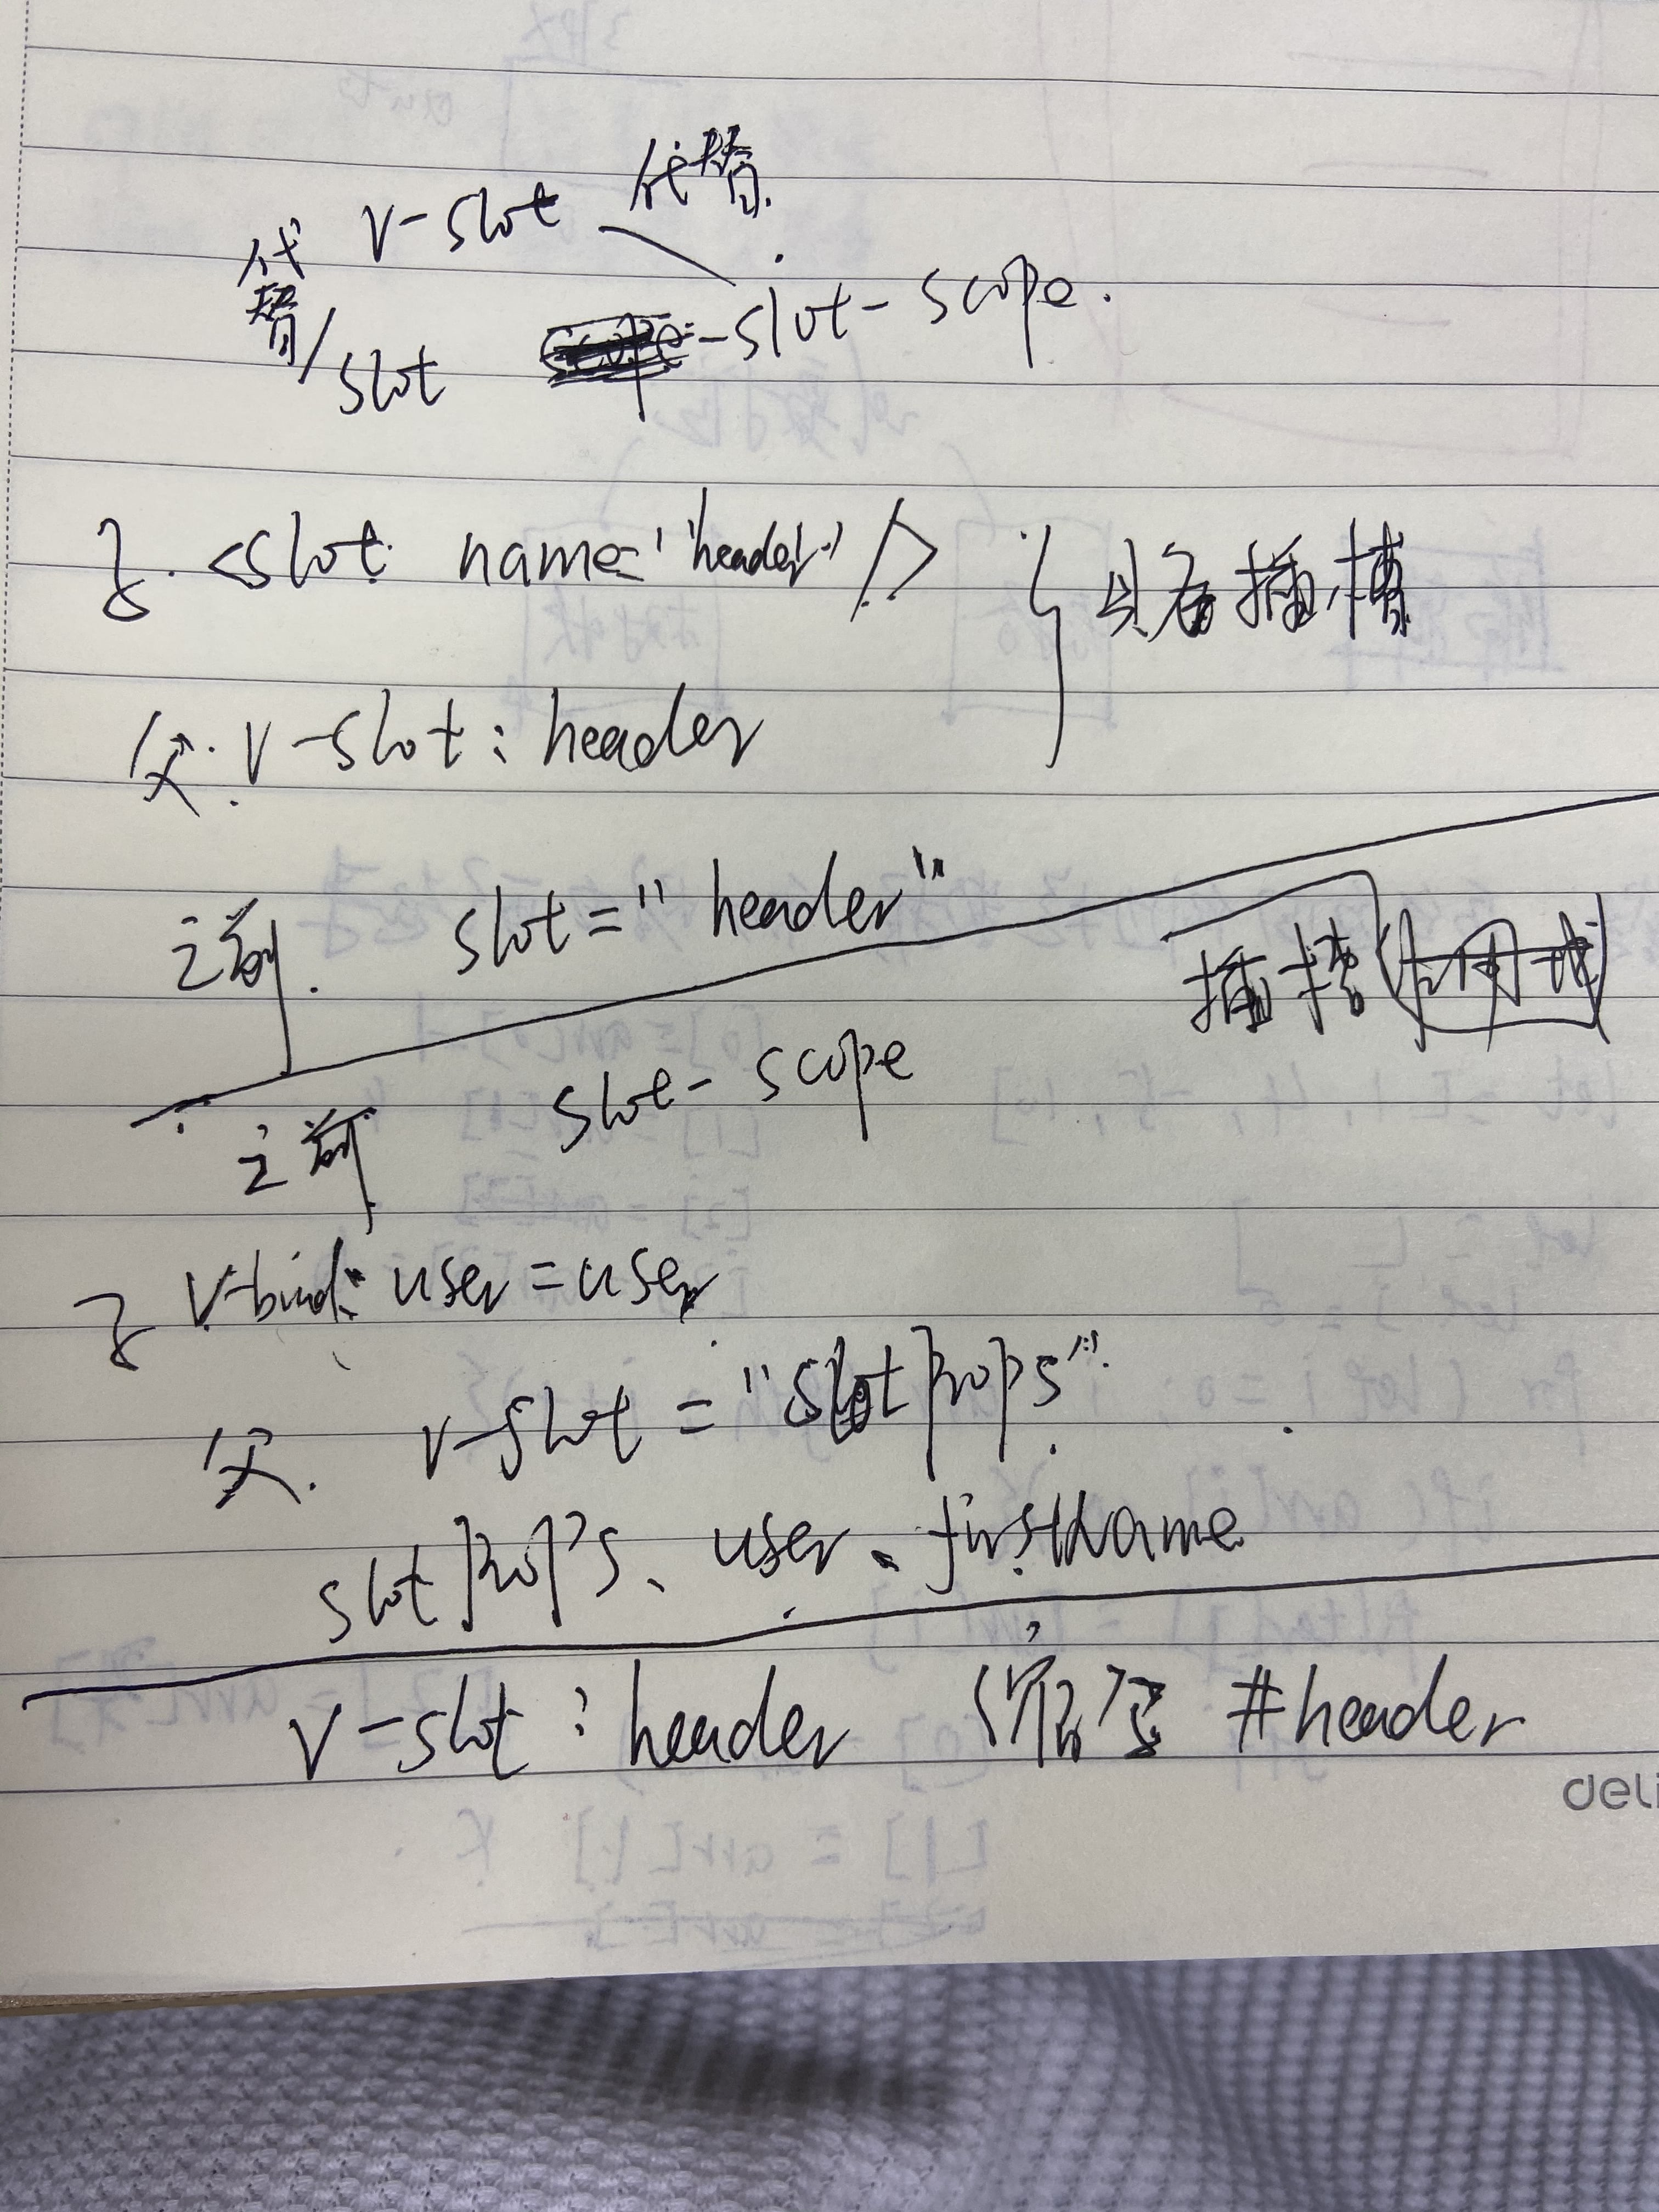 v-slot 代替
代替 slot slot-scope.
子. <slot name="header" /> } 具名插槽
父. v-slot: header
之前. slot="header"
插槽作用域
之前 slot-scope
子 v-bind: user=user
父. v-slot = "slotProps".
slotProps、user、firstName
v-slot : header 缩写 #header
deli